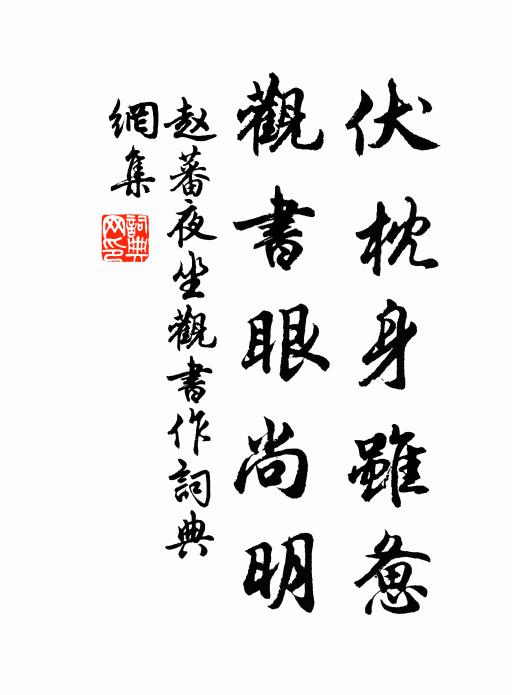 伏枕身雖惫
觀書眼尚明
赵蕃夜坐觀書作詞典
網集
詞典
网印